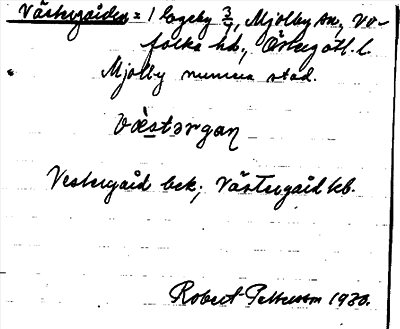 Västergården = 1 Logeby 3/7, Mjölby sn, Vi-
folka hd, Östergötl. l.
Mjölby numera stad.
væ̀stərgaɳ
Vestergård bek; Västergård kb.
Robert Pettersson 1930.